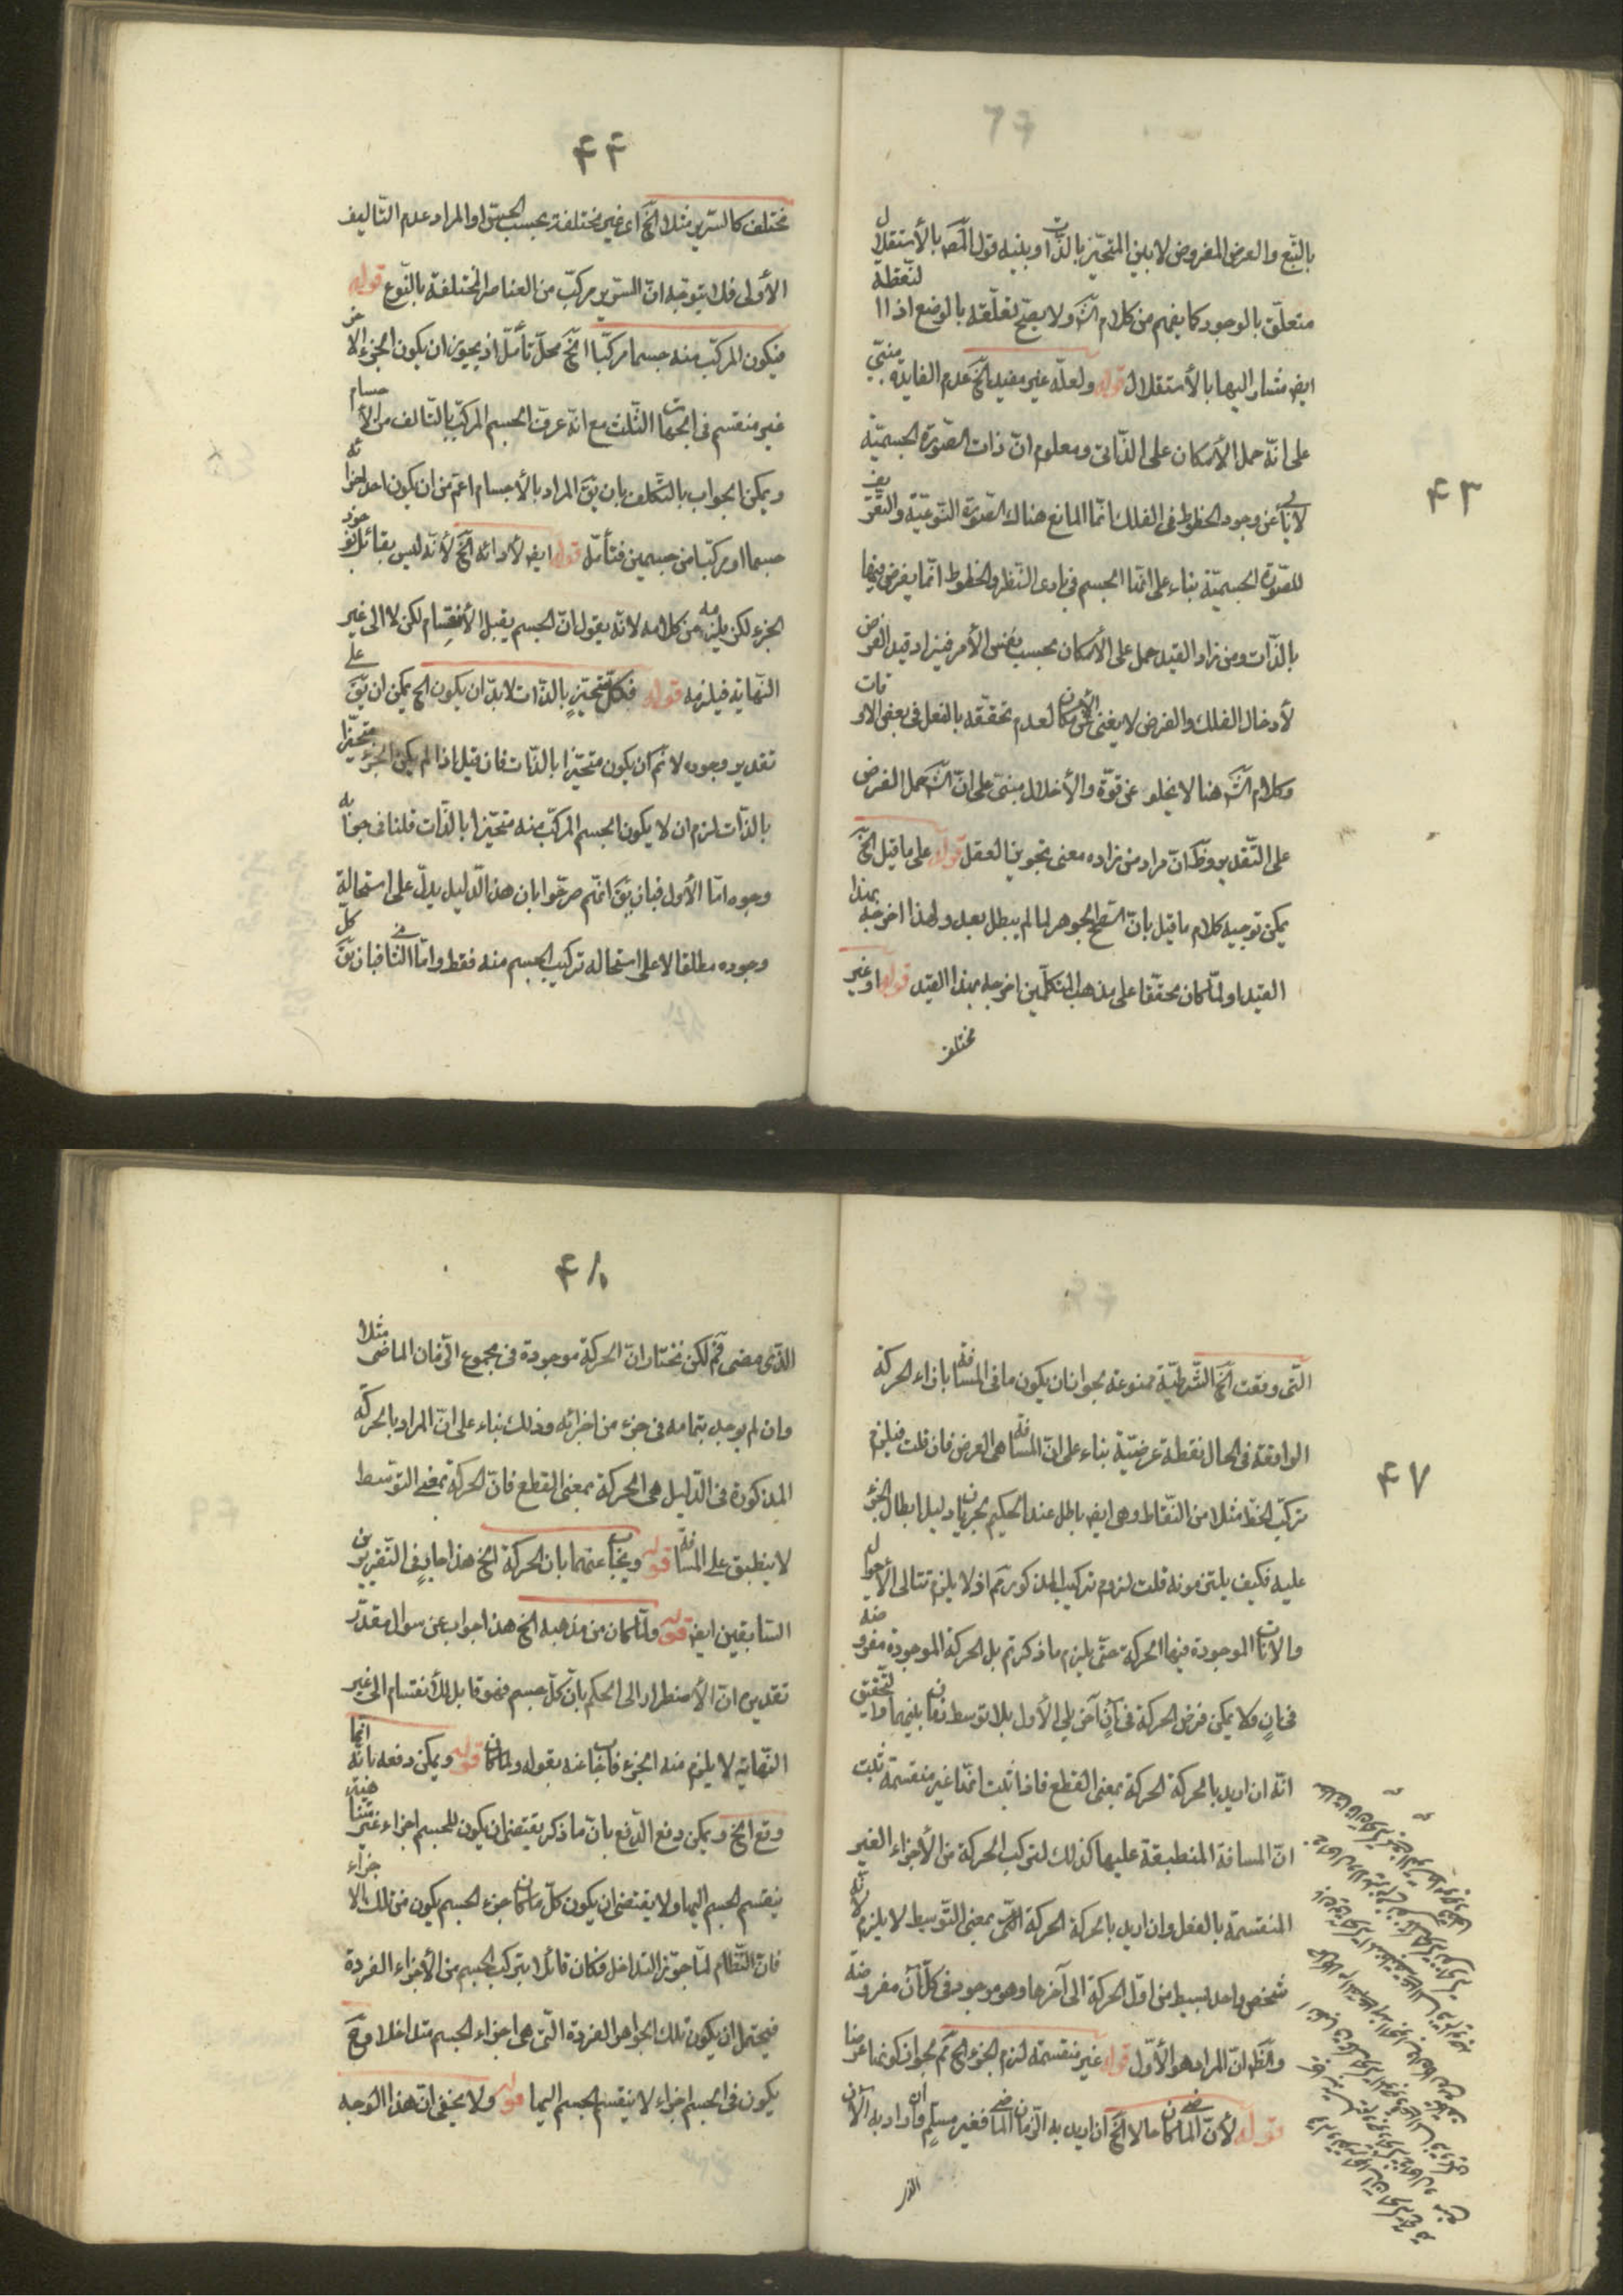 ۴۳
بالتبع والعرض المفروض لا بين المتحيز بالذات وبينه قول المص بالأستقلال
متعلق بالوجود كما يفهم من كلام الش ولا يصح تعلقه بالوضع اذ النقطة
ايض مشار اليها بالأستقلال قوله ولعله غير مفيد الخ عدم الفايدة مبنى
على انه حمل الأمكان على الذاتى ومعلوم ان ذات الصورة الجسمية
لا يأبى عن وجود الخطوط فى الفلك انما المانع هناك الصورة النوعية والتعريف
للصورة الجسمية بناء على انها الجسم فى بادى النظر والخطوط انما يفرض فيها
بالذات ومن زاد القيد حمل على الأمكان بحسب نفس الأمر فيزاد قيد الفرض
لأدخال الفلك والفرض لا يغنى عن الأمكان لعدم تحققه بالفعل فى بعض الاوقات
وكلام الش هنا لا يخلو عن قوة والأخلال مبنى على ان الش حمل الفرض
على التقدير وظ ان مراد من زاده معنى تجويز العقل قوله على ما قيل الخ
يمكن توجيه كلام ما قيل بان السطح الجوهر لما لم يبطل بعد ولهذا اخرجه بهذا
القيد او لما كان محققا على مذهب المتكلمين اخرجه بهذا القيد قوله او غير
مختلف
۴۴
مختلف كالسرير مثلا الخ اى غير مختلفة بحسب الحس او المراد عدم التاليف
الأولى فلا يتوجه ان السرير مركب من العناصر المختلفة بالنوع قوله
فيكون المركب منه جسما مركبا الخ محل تأمل اذ يجوز ان يكون الجزء الاخر
غير منقسم فى الجهات الثلث مع انه عرف الجسم المركب بالتالف من الأجسام
ويمكن الجواب بالتكلف بان يق المراد بالأجسام اعم من ان يكون احد اجزائه
جسما او مركبا من جسمين فتأمل قوله ايض لأدائه الخ لأنه ليس بقائل بوجود
الجزء لكن يلزمه من كلامه لانه يقول ان الجسم يقبل الأنقسام لكن لا الى غير
النهاية فيلزمه قوله فكل متحيز بالذات لا بد ان يكون الخ يمكن ان يق على
تقدير وجوده لا نم ان يكون متحيزا بالذات فان قيل اذا لم يكن الجزء متحيزا
بالذات لزم ان لا يكون الجسم المركب منه متحيزا بالذات قلنا فى جوابه
وجوه اما الأول فبان يق انهم صرحوا بان هذا الدليل يدل على استحالة
وجوده مطلقا لا على استحاله تركيب الجسم منه فقط واما الثانى فبان يق كل
۴۷
التى وقعت الخ الشرطية ممنوعة لجواز ان يكون ما فى المسافة بازاء الحركة
الواقعة فى الحال نقطة عرضية بناء على ان المسافة هى العرض فان قلت فيلزم
تركب الخط مثلا من النقاط وهى ايض باطل عند الحكيم لجريان دليل ابطال الجزء
عليه فكيف يلتزمونه قلت لزوم تركيب المذكور نم اذ لا يلزم تتالى الأحوال
والانات الموجودة فيها الحركة حتى يلزم ما ذكرتم بل الحركة الموجودة مفروضة
فى ان ولا يمكن فرض الحركة فى آن آخر يلى الأول بلا توسط زمان بينهما والتحقيق
انه ان اريد بالحركة الحركة بمعنى القطع فاذا ثبت انها غير منقسمة ثبت
ان المسافة المنطبقة عليها كذلك لتركب الحركة من الأجزاء الغير
المنقسمة بالفعل وان اريد بالحركة الحركة التى بمعنى التوسط لا يلزم لأنه
شخص واحد بسيط من اول الحركة الى آخرها وهو موجود فى كل آن مفروضة
والظ ان المراد هو الأول قوله غير منقسمة لزم الجزء الخ نم لجواز كونها عرضا
قوله لأن الماضى ما كان حالا الخ ان اريد به الزمان الماضى فغير مسلم وان اراد به الآن
الذى
۴۸
الذى مضى فنم لكن نختار ان الحركة موجودة فى مجموع الزمان الماضى مثلا
وان لم يوجد بتمامه فى جزء من اجزائه وذلك بناء على ان المراد بالحركة
المذكورة فى الدليل هى الحركة بمعنى القطع فان الحركة بمعنى التوسط
لا ينطبق على المسافة قوله ويجاب عنهما بان الحركة الخ هذا جار فى التقريرين
السابقين ايض قوله ولما كان من مذهبه الخ هذا جواب عن سؤال مقدر
تقديره ان الأضطرار الى الحكم بان كل جسم فهو قابل للأنقسام الى غير
النهاية لا يلزم منه الجزء فاجاب عنه بقوله ولما كان قوله ويمكن دفعه بانه انما
وقع الخ ويمكن دفع الدفع بان ما ذكر يقتضى ان يكون للجسم اجزاء غير متناهية
ينقسم الجسم اليها ولا يقتضى ان يكون كل ما كان جزء الجسم يكون من تلك الاجزاء
فان النظام لما جوز التداخل فكان قائلا بتركب الجسم من الأجزاء الفردة
فيحتمل ان يكون تلك الجواهر الفردة التى هى اجزاء الجسم متداخلا وح
يكون فى الجسم اجزاء لا ينقسم الجسم اليها قوله ولا يخفى ان هذا الوجه